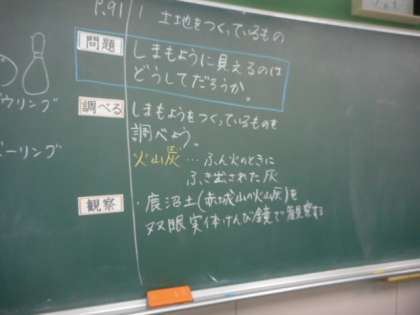 P.91 1 土地をつくっているもの
問題
しまもように見えるのは
どうしてだろうか。
調べる
しまもようをつくっているものを
調べよう。
火山灰…ふん火のときに
ふき出された灰
観察
・鹿沼土(赤城山の火山灰)を
双眼実体けんび鏡で観察する
ウリング
ーリング